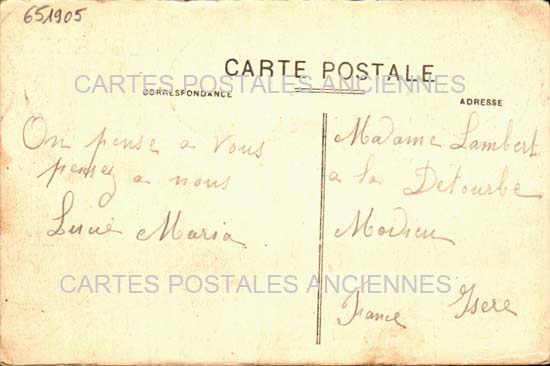 651905
CARTE POSTALE
CARTES POSTALES ANCIENNES
CORRESPONDANCE
ADRESSE
On pense a vous
pensez a nous
Lucie Maria
Madame Lambert
a la Detourbe
Moidieu
CARTES POSTALES ANCIENNES
France Isere